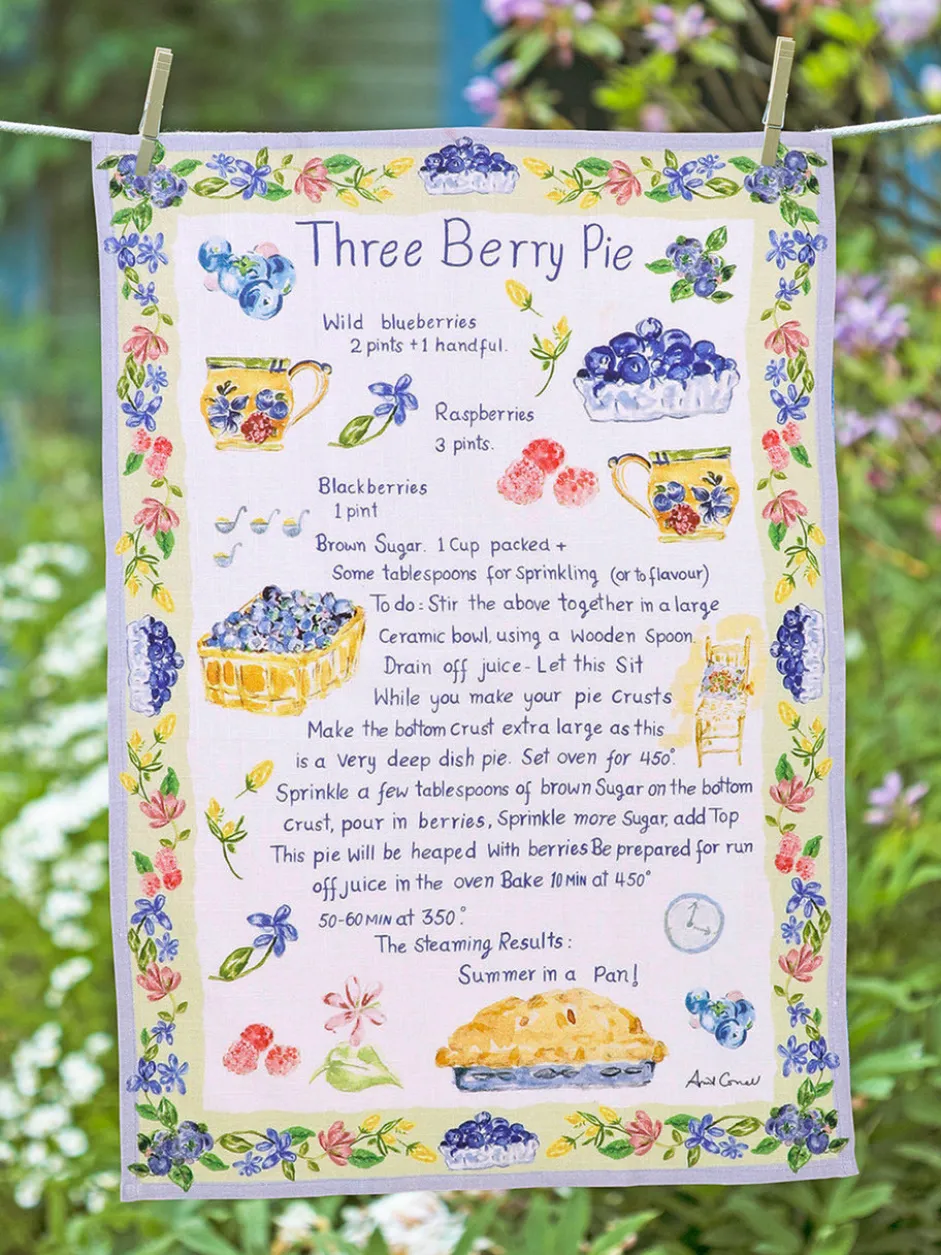 Three Berry Pie
Wild blueberries
2 pints + 1 handful.
Raspberries
3 pints.
Blackberries
1 pint
Brown Sugar. 1 Cup packed +
Some tablespoons for Sprinkling (or to flavour)
To do: Stir the above together in a large
Ceramic bowl, using a Wooden Spoon.
Drain off juice - Let this Sit
While you make your pie Crusts
Make the bottom Crust extra large as this
is a very deep dish pie. Set oven for 450°.
Sprinkle a few tablespoons of brown Sugar on the bottom
Crust, pour in berries, Sprinkle more Sugar, add Top
This pie will be heaped with berries Be prepared for run
off juice in the oven Bake 10 MIN at 450°
50-60 MIN at 350°.
The Steaming Results:
Summer in a Pan!